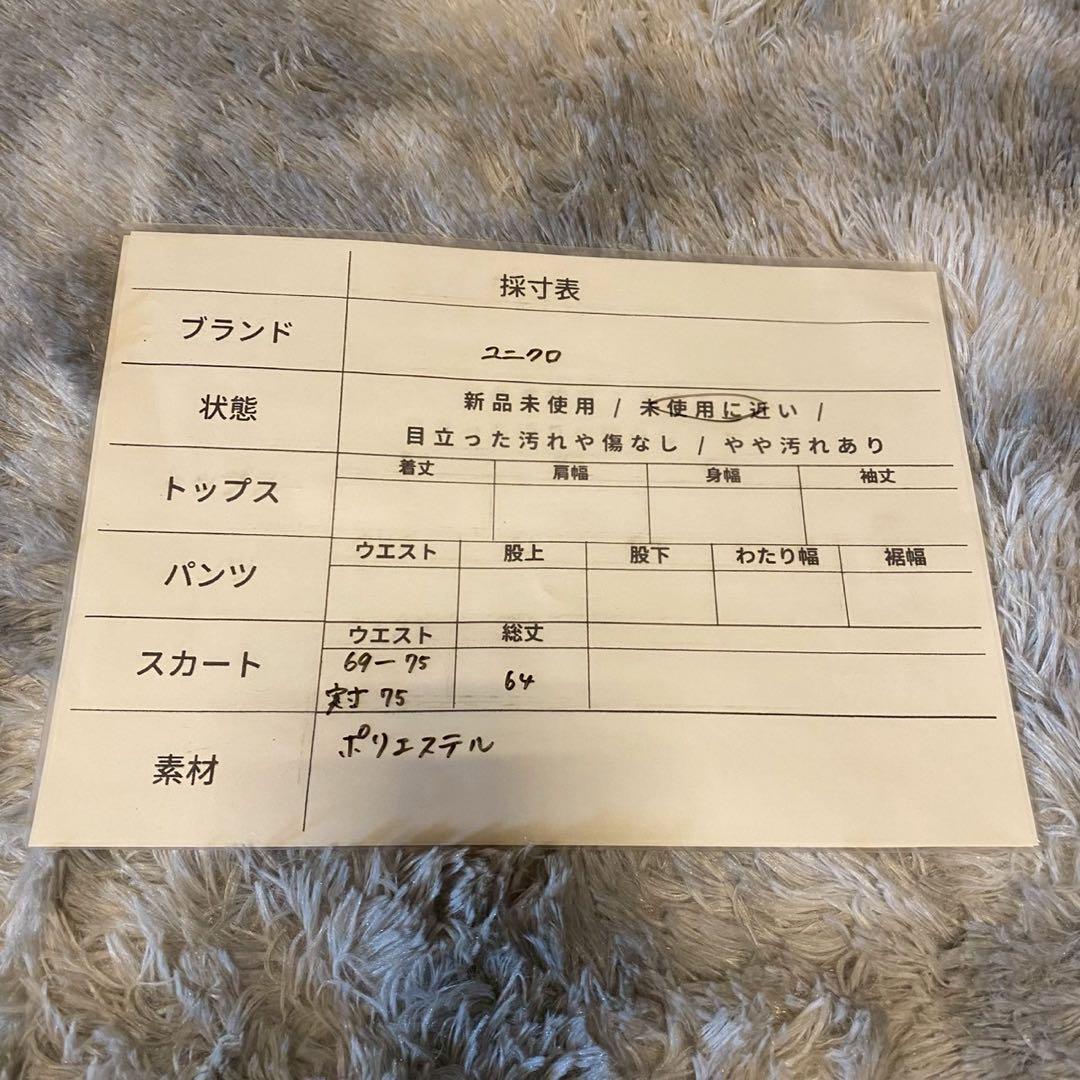 採寸表
ブランド
ユニクロ
状態
新品未使用 / 未使用に近い /
目立った汚れや傷なし / やや汚れあり
トップス
着丈 肩幅 身幅 袖丈
パンツ
ウエスト 股上 股下 わたり幅 裾幅
スカート
ウエスト 総丈
69-75
実寸 75
64
素材
ポリエステル